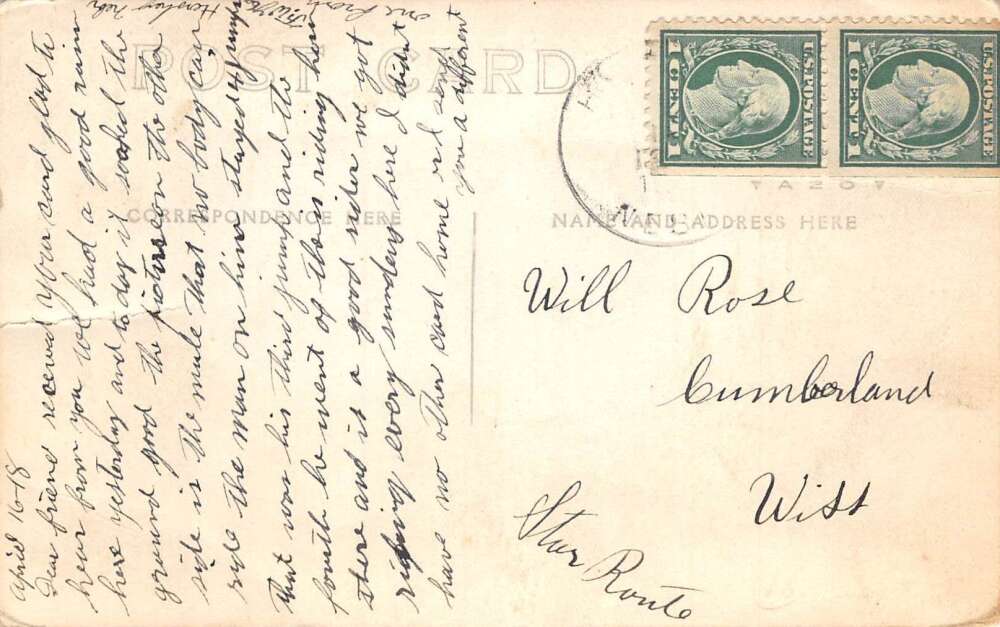 POST CARD
CORRESPONDENCE HERE
April 16-18
Dear friend received your card glad to
hear from you well had a good rain
here yesterday and to day it soaked the
ground good the picture on the other
side is the mule that two body can
ride the man on him stayed 4 jumps
that was his third jump and the
fourth he went of the is riding him
there and is a good rider we got
riding every sunday here I didnt
have no other card home wil send
you a different
one from
Hershey Nebr
U.S. POSTAGE
1 CENT 1
U.S. POSTAGE
1 CENT 1
NAME AND ADDRESS HERE
Will Rose
Cumberland
Wiss
Star Route